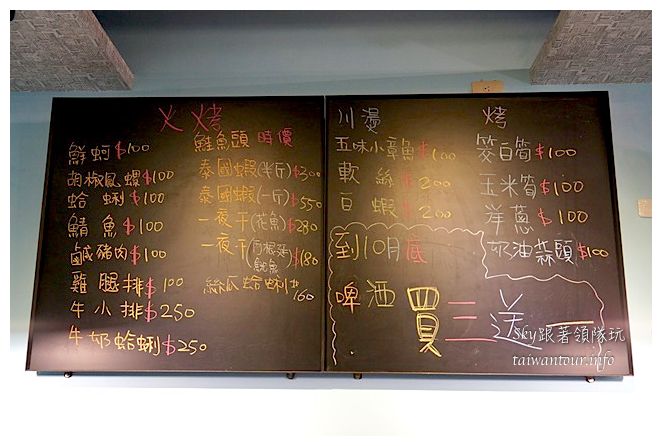 火烤
鮮蚵$100
胡椒鳳螺$100
蛤蜊$100
鯖魚$100
鹹豬肉$100
雞腿排$100
牛小排$250
牛奶蛤蜊$250
鮭魚頭 時價
泰國蝦(半斤)$300
泰國蝦(一斤)$550
一夜干(花魚)$280
一夜干(阿根廷魷魚)$180
絲瓜蛤蜊$160
川燙
五味小章魚$100
軟絲$200
白蝦$200
到10月底
啤酒買三送一
烤
筊白筍$100
玉米筍$100
洋蔥$100
奶油蒜頭$100
Sky跟著領隊玩
taiwantour.info